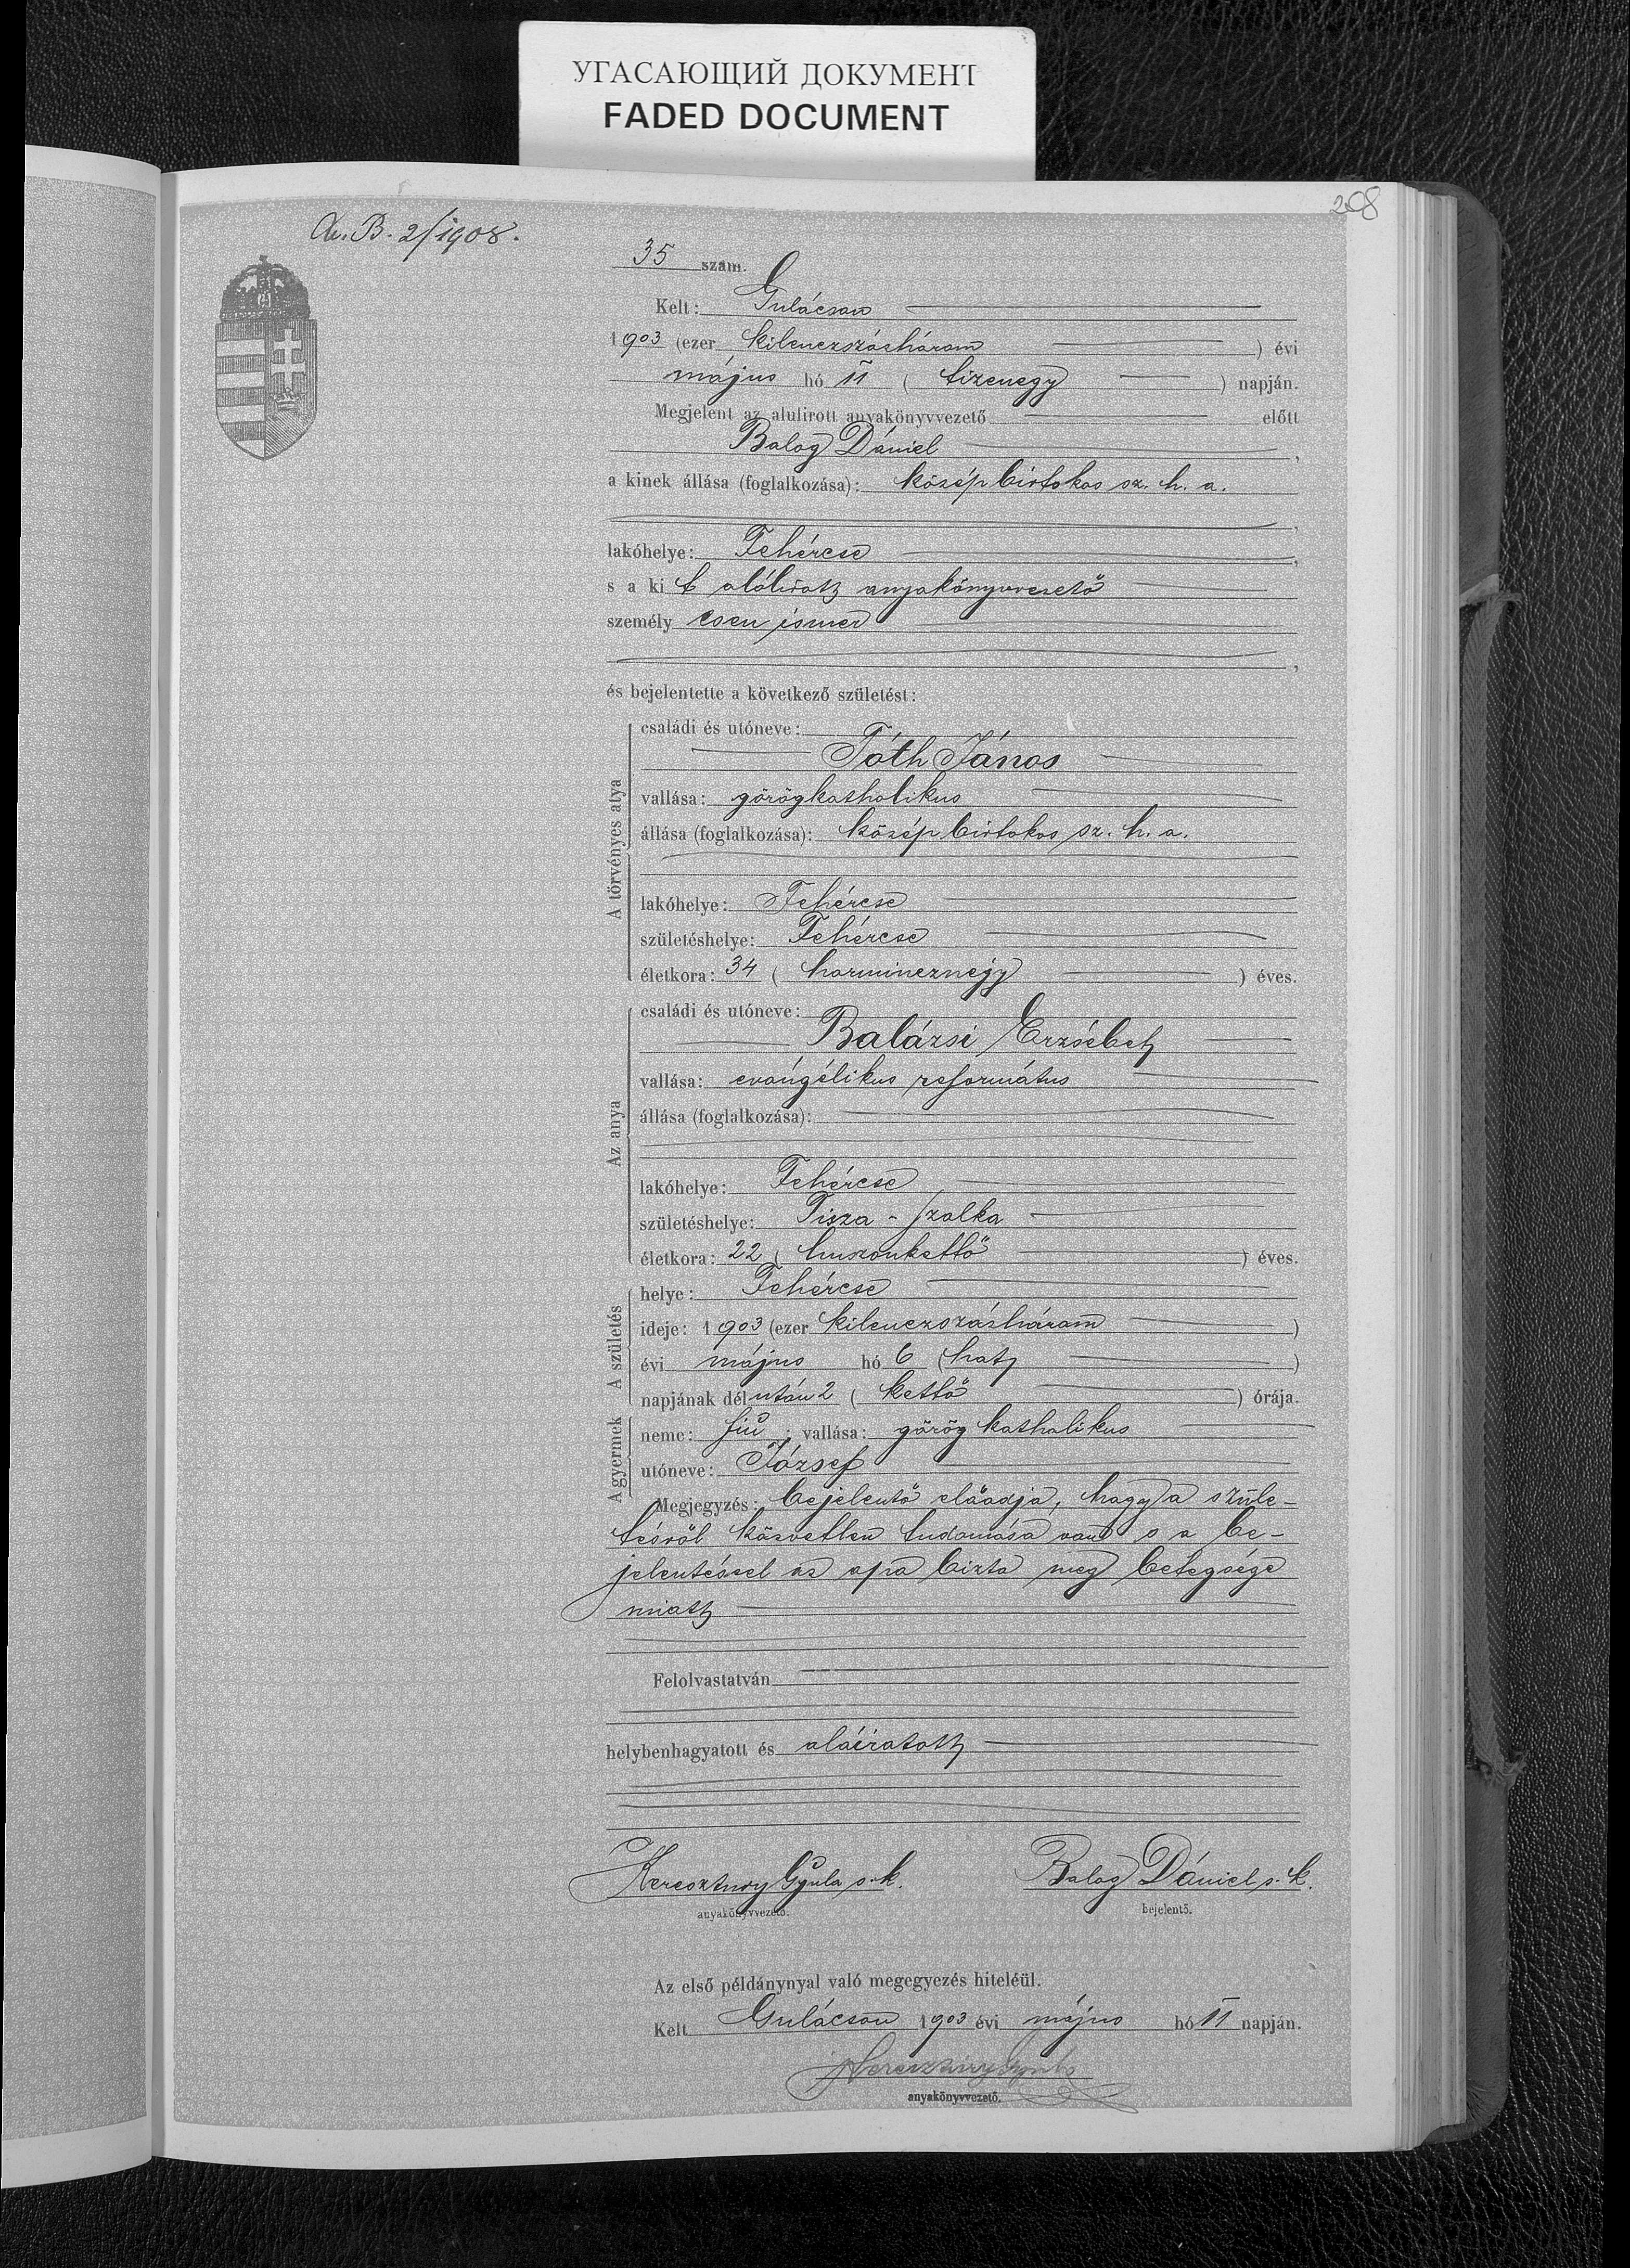 УГАСАЮЩИЙ ДОКУМЕНТ
FADED DOCUMENT
208
B. 2/1908.
35 szám.
Kelt: Gulácson
1903 (ezer kilenczszázhárom) évi
május hó 11 (tizenegy) napján.
Megjelent az alulirott anyakönyvvezető előtt
Balog Dániel,
a kinek állása (foglalkozása): közép birtokos sz. h. a.
lakóhelye: Fehércse,
s a kit alólirott anyakönyvvezető
személyesen ismer
és bejelentette a következő születést:
A törvényes atya
családi és utóneve:
Tóth János
vallása: görögkatholikus
állása (foglalkozása): közép birtokos sz. h. a.
lakóhelye: Fehércse
születéshelye: Fehércse
életkora: 34 (harmincznégy) éves.
Az anya
családi és utóneve:
Balázsi Erzsébet
vallása: evangélikus református
állása (foglalkozása):
lakóhelye: Fehércse
születéshelye: Tisza-Szalka
életkora: 22 (huszonkettő) éves.
A születés
helye: Fehércse
ideje: 1903 (ezer kilenczszázhárom)
évi május hó 6 (hat)
napjának délután 2 (kettő) órája.
A gyermek
neme: fiú; vallása: görög katholikus
utóneve: József
Megjegyzés: bejelentő előadja, hogy a szüle-
tésről közvetlen tudomása van s a be-
jelentéssel az apa bizta meg betegsége
miatt
Felolvastatván
helybenhagyatott és aláiratott
Keresztury Gyula s. k. Balog Dániel s. k.
anyakönyvvezető. bejelentő.
Az első példánynyal való megegyezés hiteléül.
Kelt Gulácson 1903 évi május hó 11 napján.
Keresztury Gyula
anyakönyvvezető.